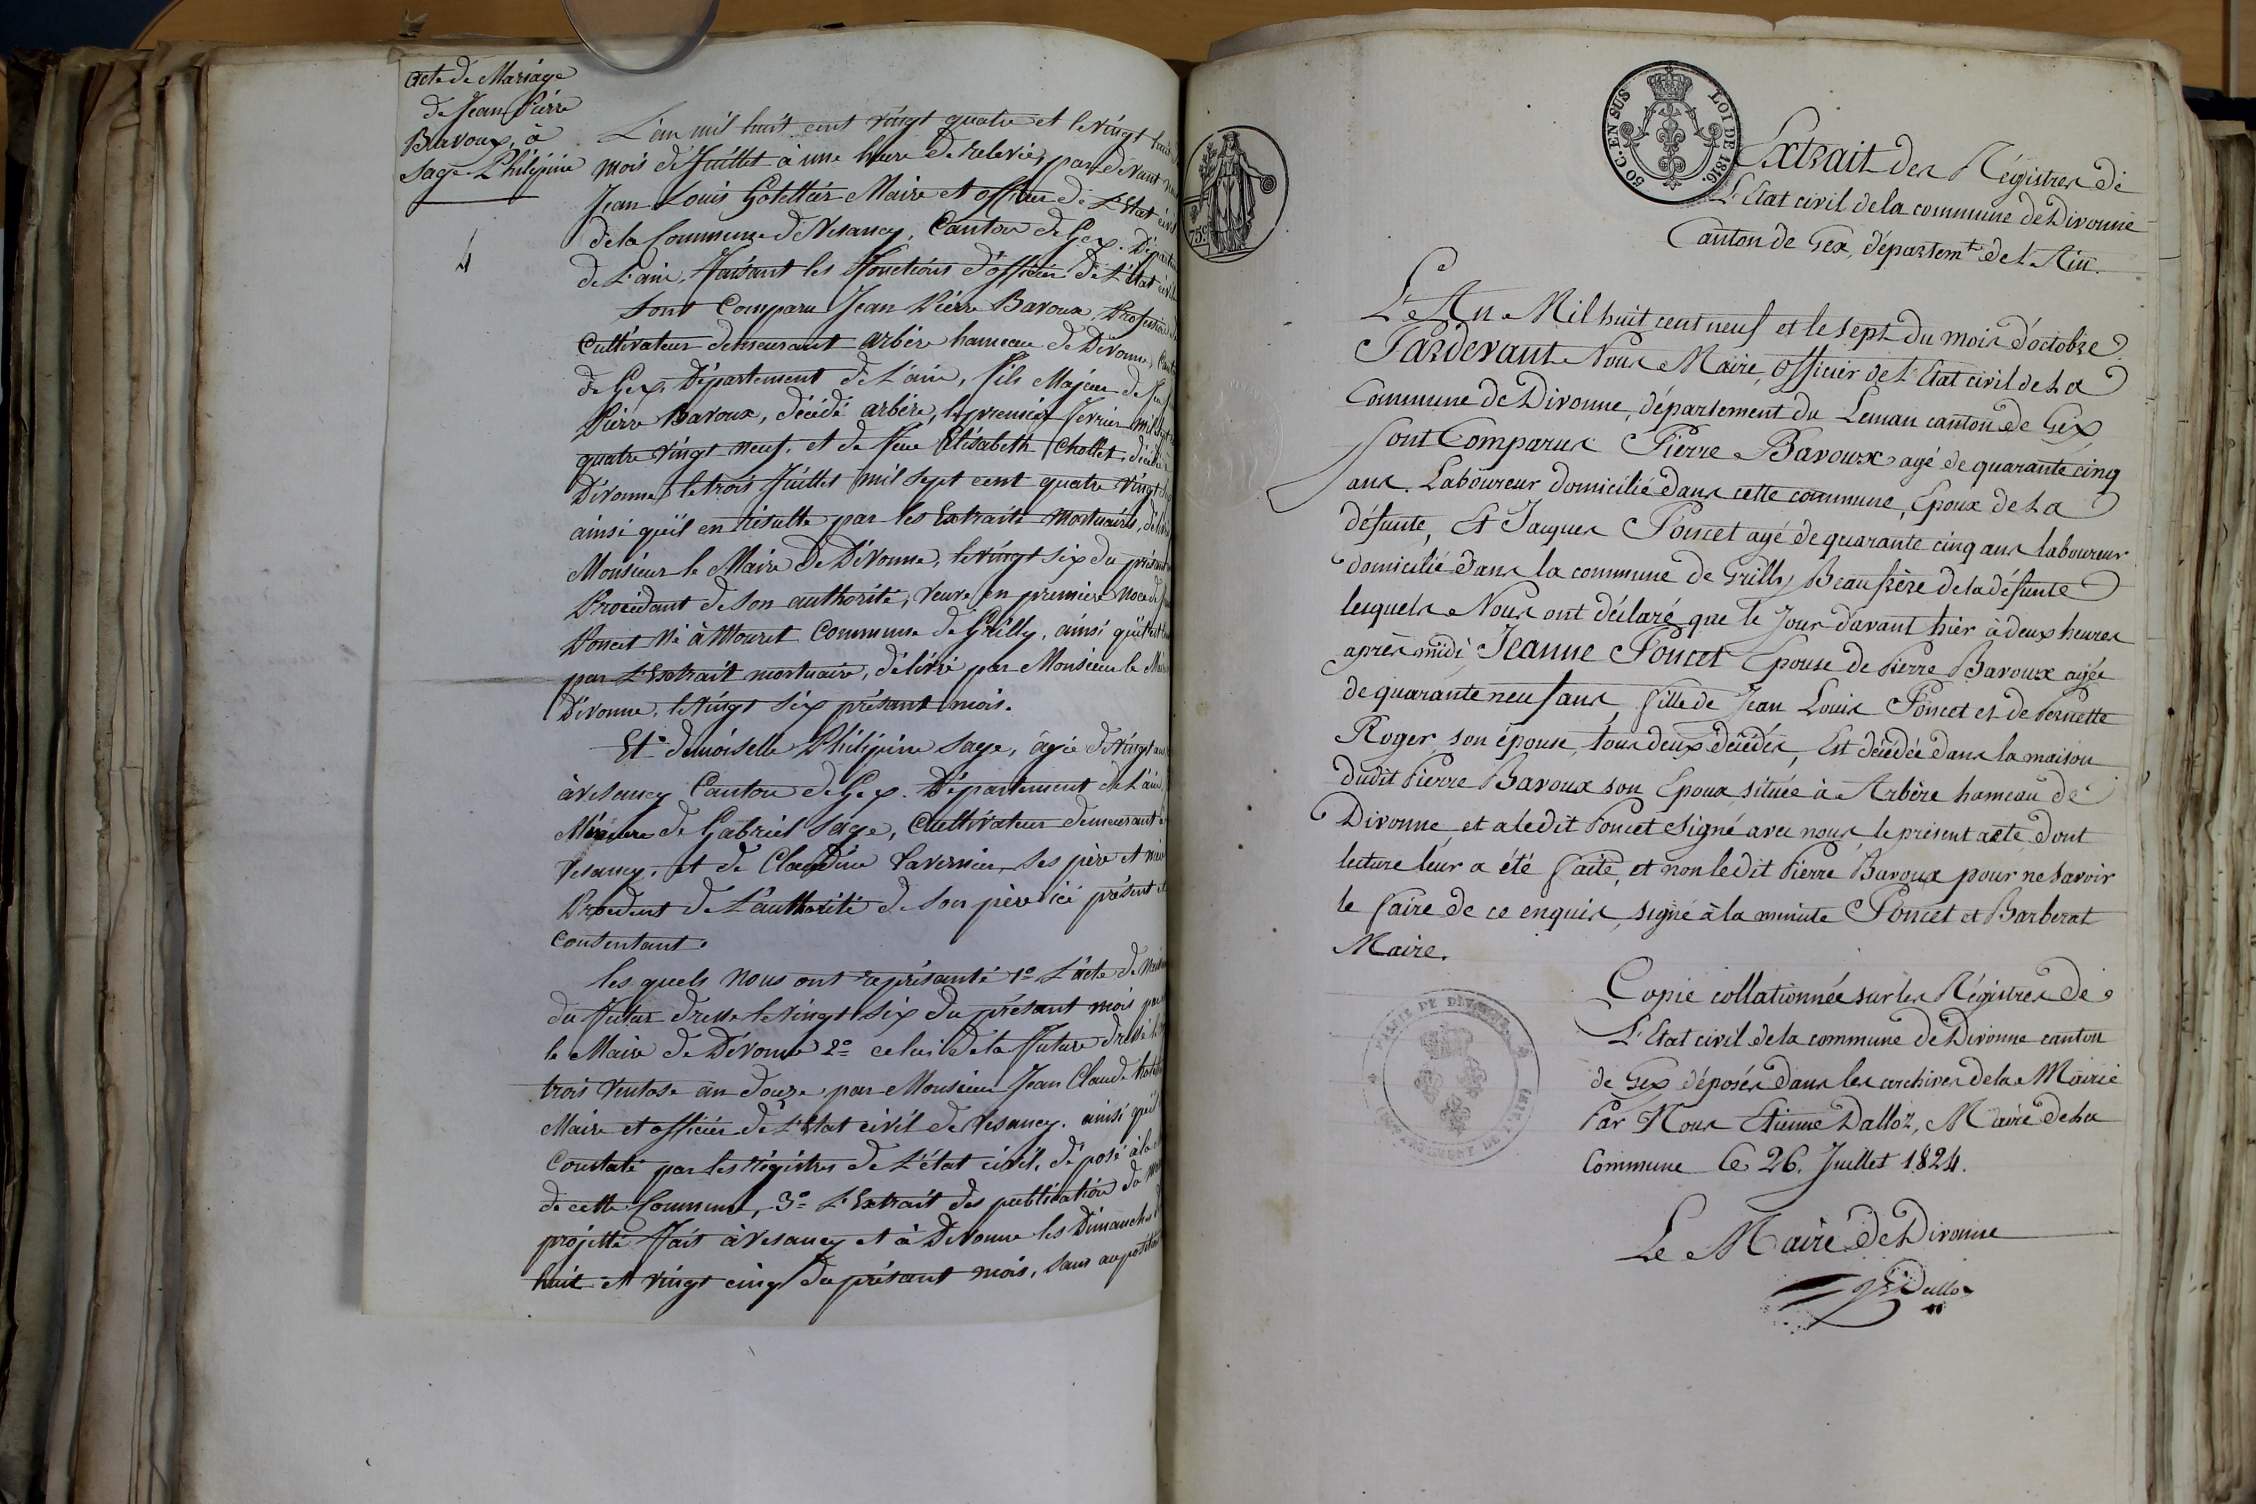 Acte de Mariage
de Jean Pierre
Bavoux, à
Sage Philipine
4
L'an mil huit cent vingt quatre et le vingt huit
mois de Juillet à une heure de relevée, par devant
Jean Louis Maire et officier de L'Etat civil
de la Commune de Vesancy, Canton de Gex. Départem
de L'ain, faisant les fonctions d'officier de L'Etat civil
Sont Comparu Jean Pierre Bavoux, Profession
Cultivateur demeurant arbère hameau de Divonne, Cant
de Gex, Département de L'ain, fils Majeur de feu
Pierre Bavoux, décédé arbère, le premier fevrier mil sept
quatre vingt neuf, et de feue Elisabeth Chollet, décédée
Divonne, le trois Juillet mil sept cent quatre vingt
ainsi qu'il en résulte par les Extraits mortuaires, dé
Monsieur le Maire de Divonne, le vingt six du présent
Procédant de son authorité, veuve en première noce de
Poncet né à Mourex Commune de Grilly, ainsi qu'il
par L'Extrait mortuaire, délivré par Monsieur le M
Divonne, le vingt six présant mois.
Et demoiselle Philipine Sage, âgée de vingt
à Vesancy Canton de Gex. Département de L'ain,
Mineure de Gabriel Sage, Cultivateur demeurant à
Vesancy, et de Claudine Tavernier, ses père et mère
Procédent de L'authorité de son père ici présent et
consentant.
les quels nous ont représanté 1º L'acte de
du futur dressé le vingt six du présant mois par
le Maire de Divonne 2º celui de la future dressé le
trois Ventose an douze, par Monsieur Jean Claude
Maire et officier de L'Etat civil de Vesancy. ainsi qu'il
Constaté par les régistres de L'état civil, déposé à la
de cette Commune, 3º L'Extrait des publication de
projetté fait à Vesancy et à Divonne les Dimanches
huit et vingt cinq du présant mois, sans
75c
50 C. EN SUS
LOI DE 1816.
Extrait des Régistres de
L'Etat civil de la commune de Divonne
Canton de Gex, départemt. de l'Ain.
L'An Mil huit cent neuf et le sept du mois d'octobre
Pardevant Nous Maire, officier de l'Etat civil de La
Commune de Divonne, département du Leman canton de Gex
sont Comparus Pierre Bavoux agé de quarante cinq
ans. Laboureur domicilié dans cette commune, Epoux de La
défunte, Et Jacques Poncet agé de quarante cinq ans laboureur
domicilié dans la commune de Grilly Beaufrère de la défunte
lesquels Nous ont déclaré que le Jour d'avant hier à deux heures
après midi Jeanne Poncet Epouse de Pierre Bavoux agée
de quarante neuf ans fille de Jean Louis Poncet et de Pernette
Roger son épouse, tous deux décédés, Est décédée dans la maison
dudit Pierre Bavoux son Epoux située à Arbère hameau de
Divonne et a ledit Poncet signé avec nous, le présent acte dont
lecture leur a été faite, et non ledit Pierre Bavoux pour ne savoir
le faire de ce enquis, signé à la minute Poncet et Barberat
Maire.
Copie collationnée sur les Régistres de
L'Etat civil de la commune de Divonne canton
de Gex déposés dans les archives de la Mairie
Par Nous Etienne Dalloz, Maire de La
Commune Ce 26. Juillet 1824.
Le Maire de Divonne
Dalloz
MAIRIE DE DIVONNE